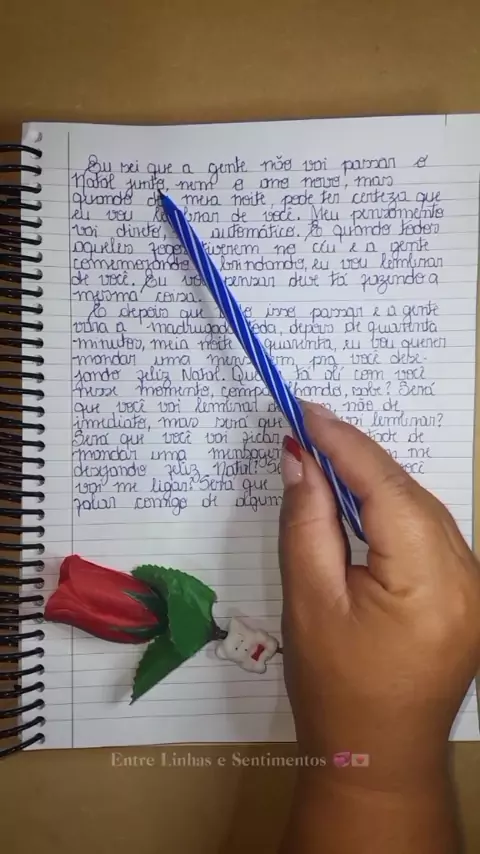 Eu sei que a gente não vai passar o
Natal junto, nem o ano novo, mas
quando der meia noite, pode ter certeza que
eu vou lembrar de você. Meu pensamento
vai direto, automático. E quando todos
aqueles fogos tiverem no céu e a gente
comemorando brindando, eu vou lembrar
de você. Eu vou pensar deve tá fazendo a
mesma coisa.
E depois que isso passar e a gente
vara a madrugada toda, depois de quarenta
minutos, meia noite quarenta, eu vou querer
mandar uma mensagem pra você dese-
jando feliz Natal. tá ali com você
nesse momento, compartilhando, sabe? Será
que você vai lembrar de mim, não de
imediato, mas será que vai lembrar?
Será que você vai ficar de
mandar uma mensagem me
desejando feliz Natal? você
vai me ligar? Será que
falar comigo de
Entre Linhas e Sentimentos 💞💌